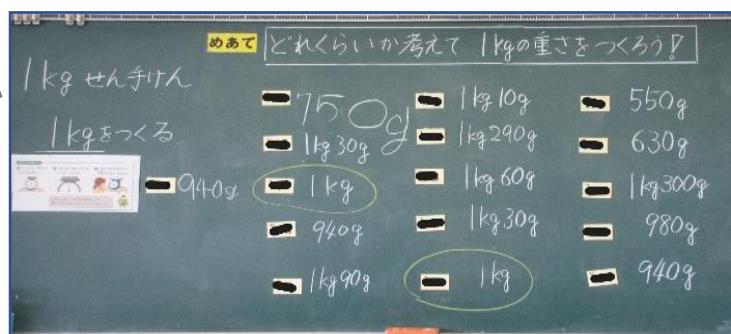 めあて
どれくらいか考えて 1kgの重さをつくろう!
1kg せん手けん
1kgをつくる
940g
750g
1kg30g
1kg
940g
1kg90g
1kg10g
1kg290g
1kg60g
1kg30g
1kg
550g
630g
1kg300g
980g
940g